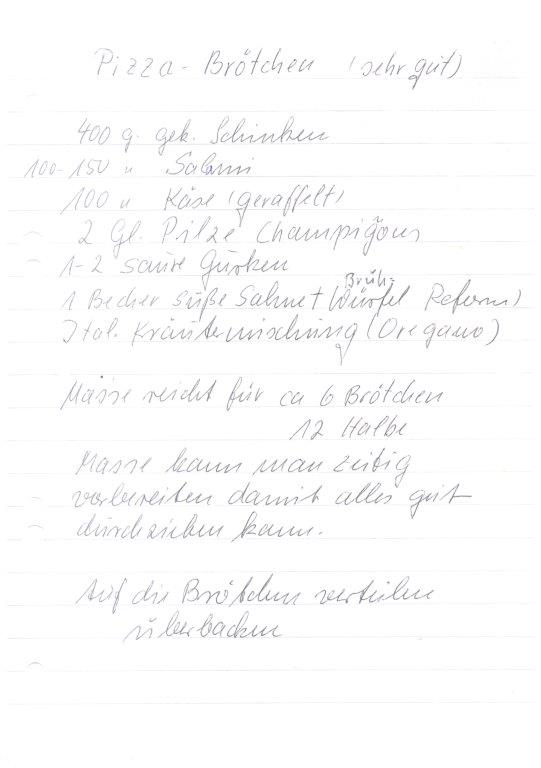 Pizza-Brötchen (sehr gut)
400 g. gek. Schinken
100-150 " Salami
100 " Käse (geraffelt)
2 Gl. Pilze Champignons
1-2 saure Gurken
Brüh-
1 Becher süße Sahne + Würfel Reform)
Ital. Kräutermischung (Oregano)
Masse reicht für ca 6 Brötchen
12 Halbe
Masse kann man zeitig
vorbereiten damit alles gut
durchziehen kann.
Auf die Brötchen verteilen
überbacken